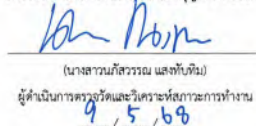 (นางสาวนภัสวรรณ แสงทับทิม)
ผู้ดำเนินการตรวจวัดและวิเคราะห์สภาวะการทำงาน
9 , 5 , 68